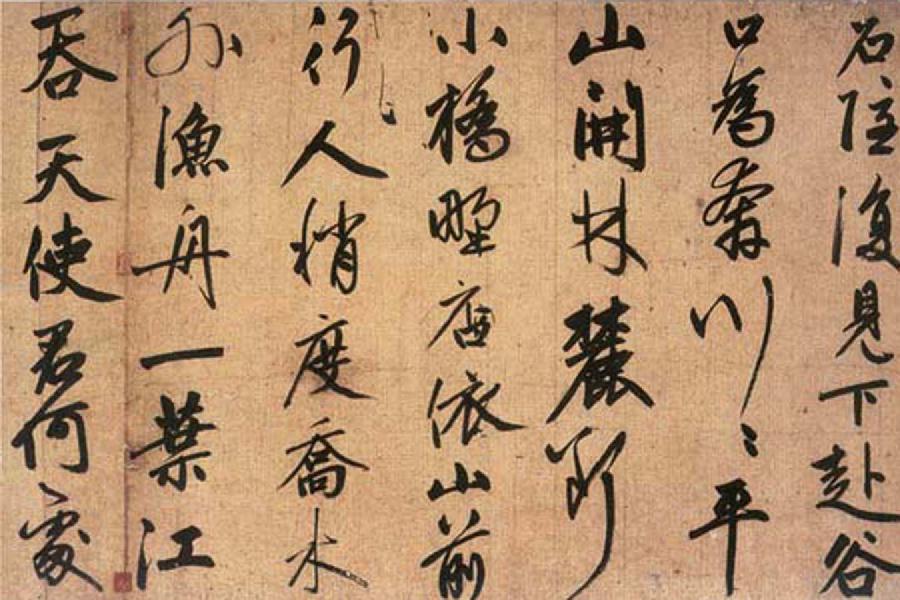 石隱復見下赴谷
口為奔川〻平
山開林麓斷
小橋野店依山前
行人稍度喬木
外漁舟一葉江
吞天使君何處